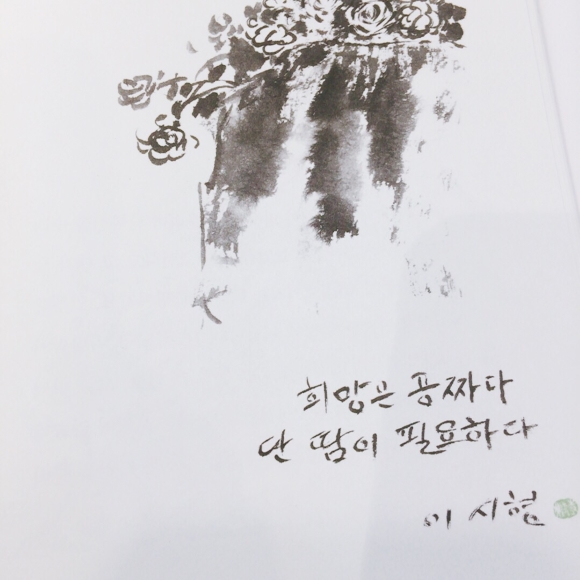 희망은 공짜다
단 땀이 필요하다
이 시현